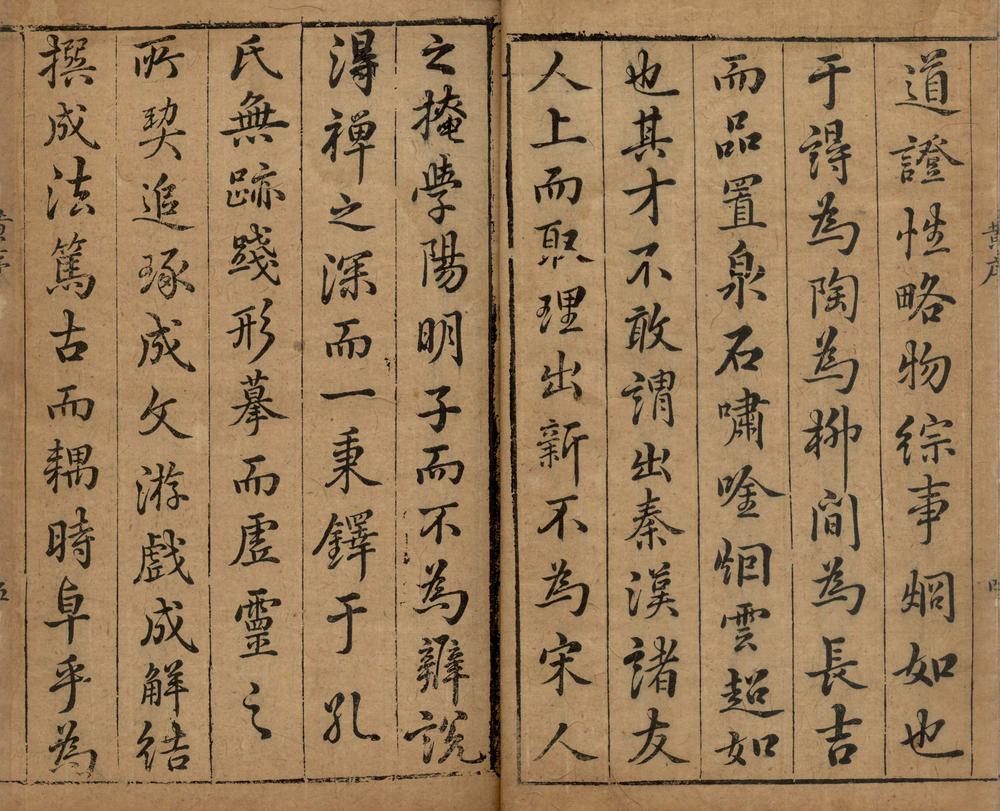 道證性略物綜事烱如也
于詩為陶為柳間為長吉
而品置泉石嘯唫烟雲超如
也其才不敢謂出秦漢諸友
人上而取理出新不為宋人
之掩學陽明子而不為辦說
淂禪之深而一秉鐸于孔
氏無跡踐形摹而虛靈之
所契追琢成文游戲成解結
撰成法篤古而耦時卓乎為
黃序